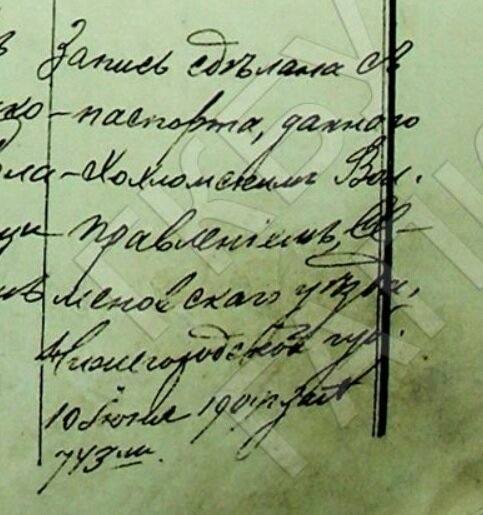 Запись сдѣлана съ
-паспорта, даннаго
-Хохломскимъ Вол.
Правленіемъ, Се-
меновскаго уѣзда,
Нижегородской губ.
10 Іюня 1901 г за №
743 мъ.